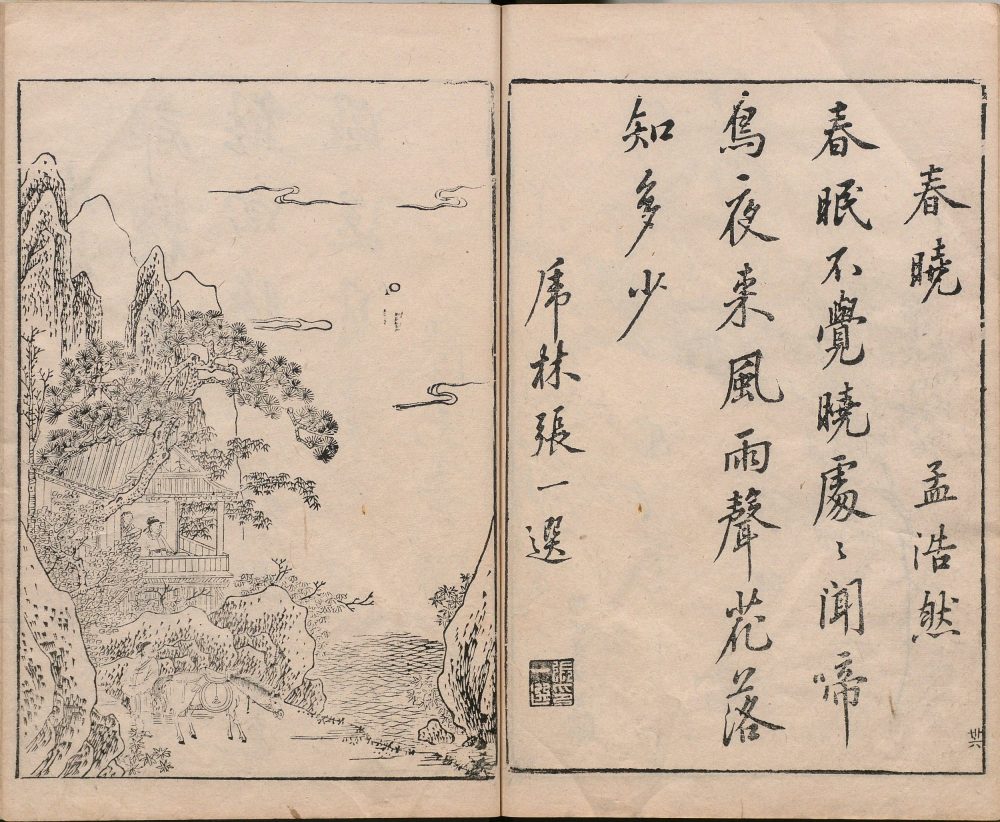 春曉　孟浩然
春眠不覺曉處〻聞啼
鳥夜來風雨聲花落
知多少
虎林張一選
張印一選
廿六